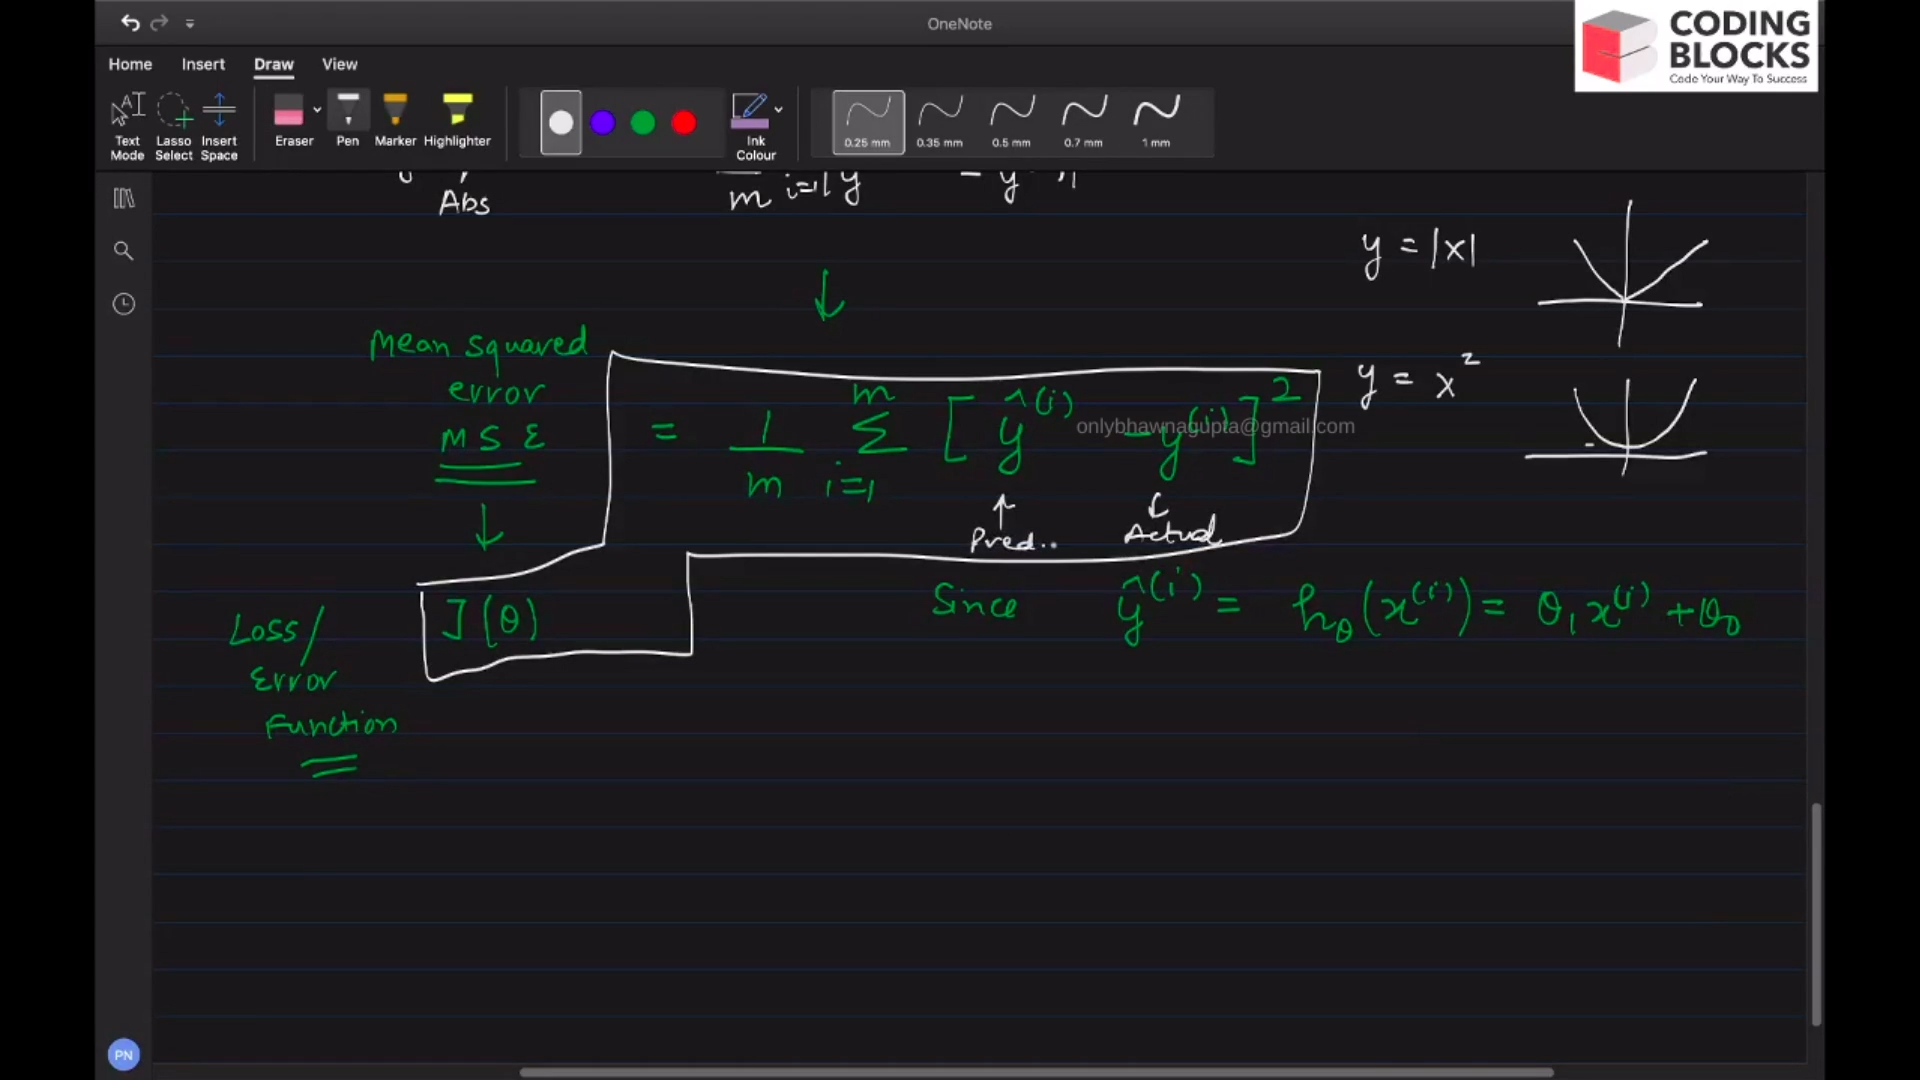 OneNote
CODING
BLOCKS
Code Your Way To Success
Home Insert Draw View
Text Mode
Lasso Select
Insert Space
Eraser
Pen
Marker
Highlighter
Ink Colour
0.25 mm
0.35 mm
0.5 mm
0.7 mm
1 mm
Abs
m i=1 y - y
y = |x|
Mean squared
error
MSE
= 1/m Σ_{i=1}^{m} [ŷ^(i) - y^(i)]^2
onlybhawnagupta@gmail.com
y = x^2
Pred.. Actual
J(θ)
Since ŷ^(i) = h_θ(x^(i)) = θ_1 x^(i) + θ_0
Loss/
Error
Function
PN